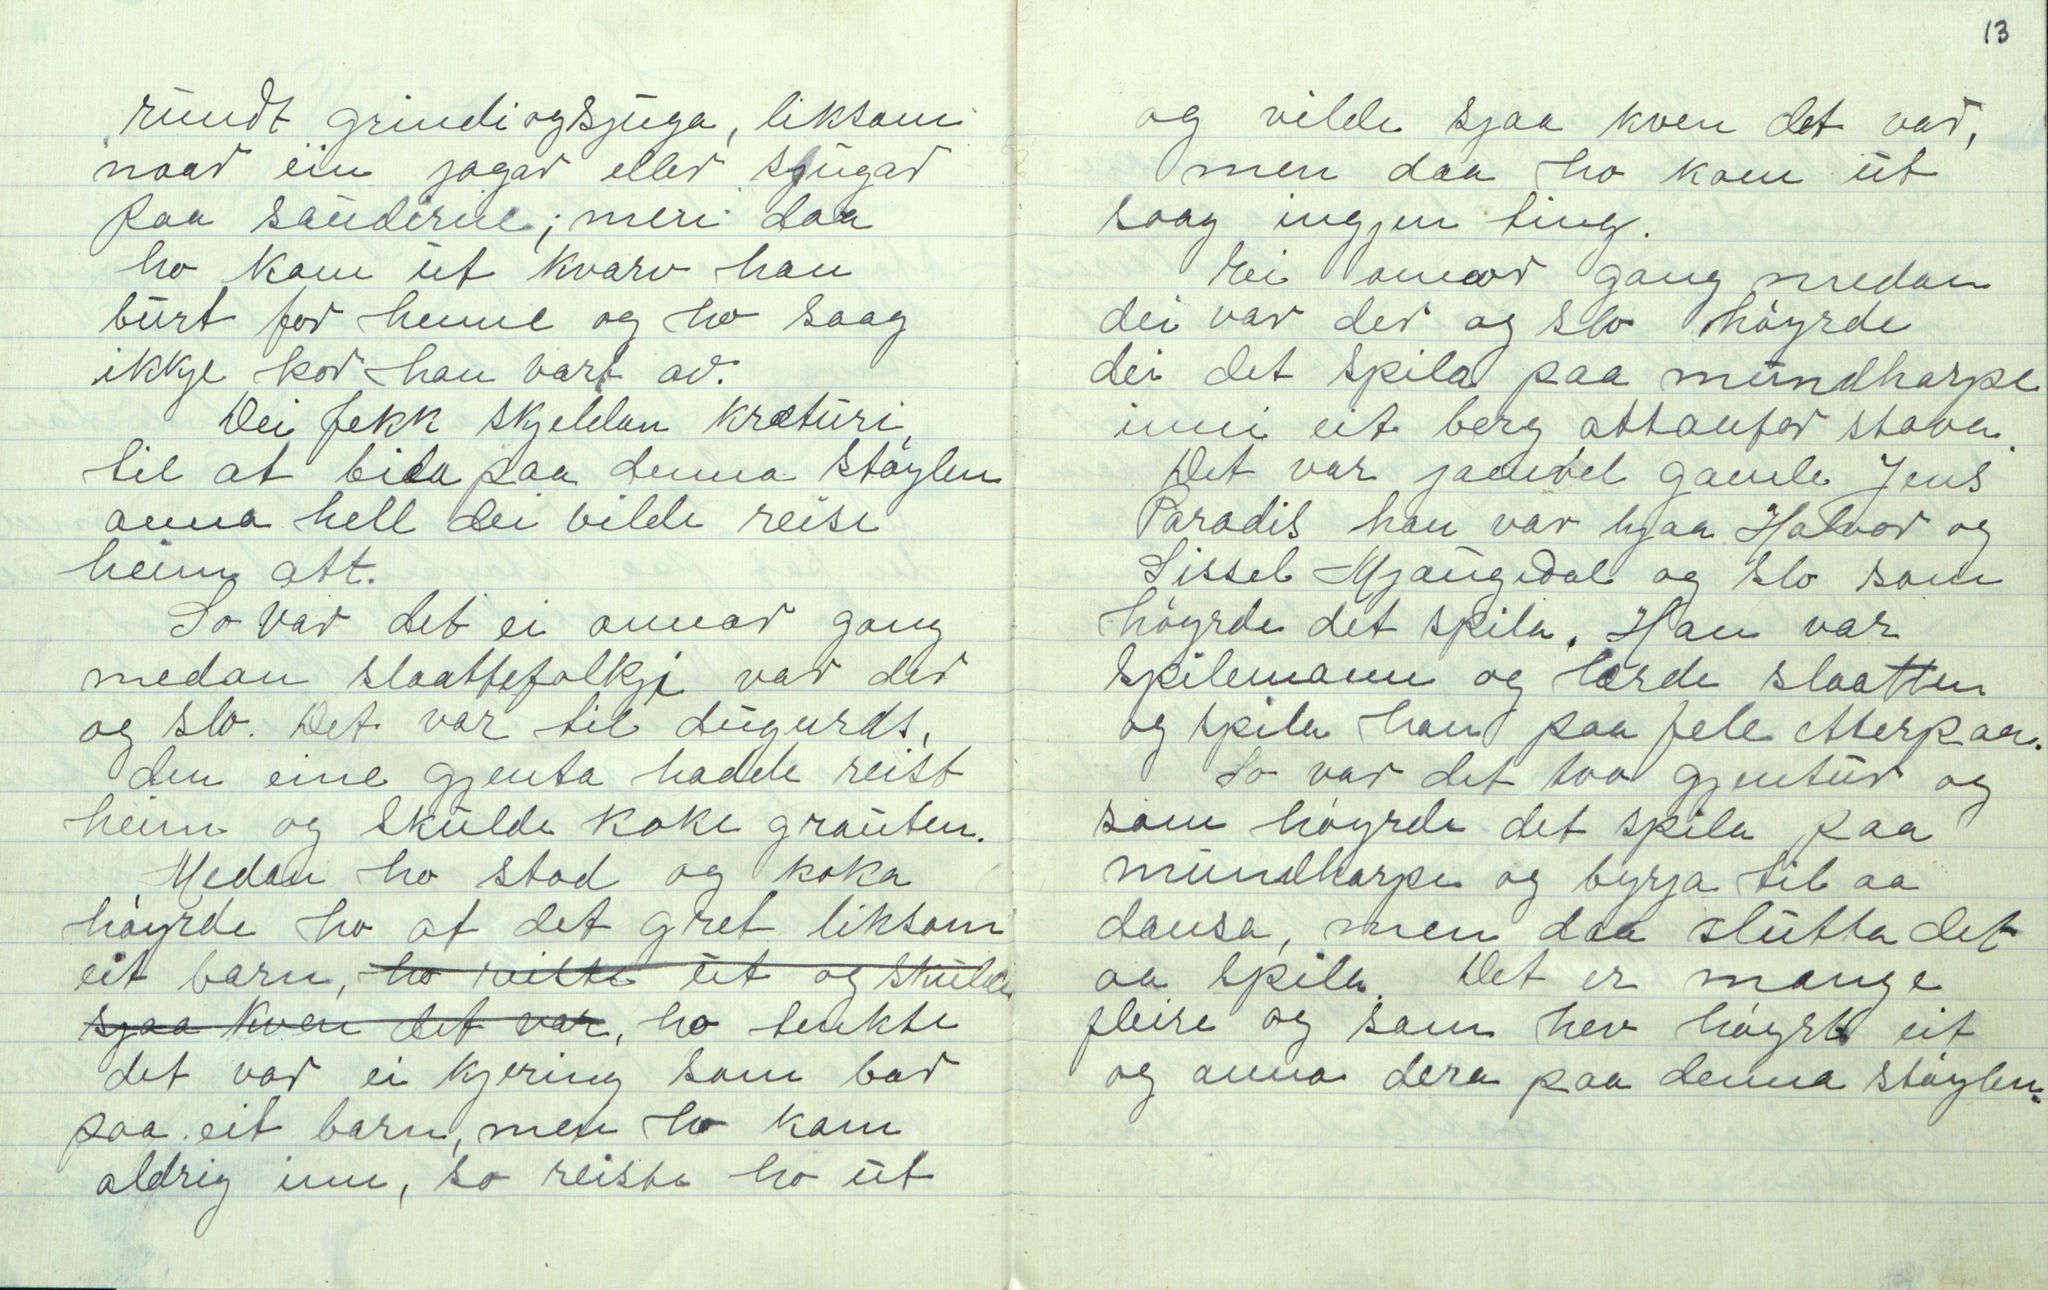 rundt grindi og sjuga, liksom
naar ein jagar eller sjugar
paa sauderne; men daa
ho kom ut kvarv han
burt for henne og ho saag
ikkje kor han vart av.
Dei fekk skjeldan kræturi
til at bida paa denna støylen
anna hell dei vilde reise
heim att.
So var det ei annar gang
medan slaattefolkji var der
og slo. Det var til dugurds,
den eine gjenta hadde reist
heim og skulde koke grauten.
Medan ho stod og koka
høyrde ho at det gret liksom
eit barn, ho reiste ut og skulde
sjaa kven det var, ho tenkte
det var ei kjering som bar
paa eit barn, men ho kom
aldrig inn, so reiste ho ut
13
og vilde sjaa kven det var,
men daa ho kom ut
saag ingjen ting.
Ei annar gang medan
dei var der og slo høyrde
dei det spila paa mundharpe
inni eit berg attanfor stova.
Det var jamvel gamle Jens
Paradis han var hjaa Halvor og
Sissel Mjaugedal og slo som
høyrde det spila. Han var
spilemann og lærde slaatten
og spila han paa fele etterpaa.
So var det tvo gjentur og
som høyrde det spila paa
mundharpe og byrja til aa
dansa, men daa slutta det
aa spila. Det er mange
fleire og som hev høyrt eit
og anna dera paa denna støylen.